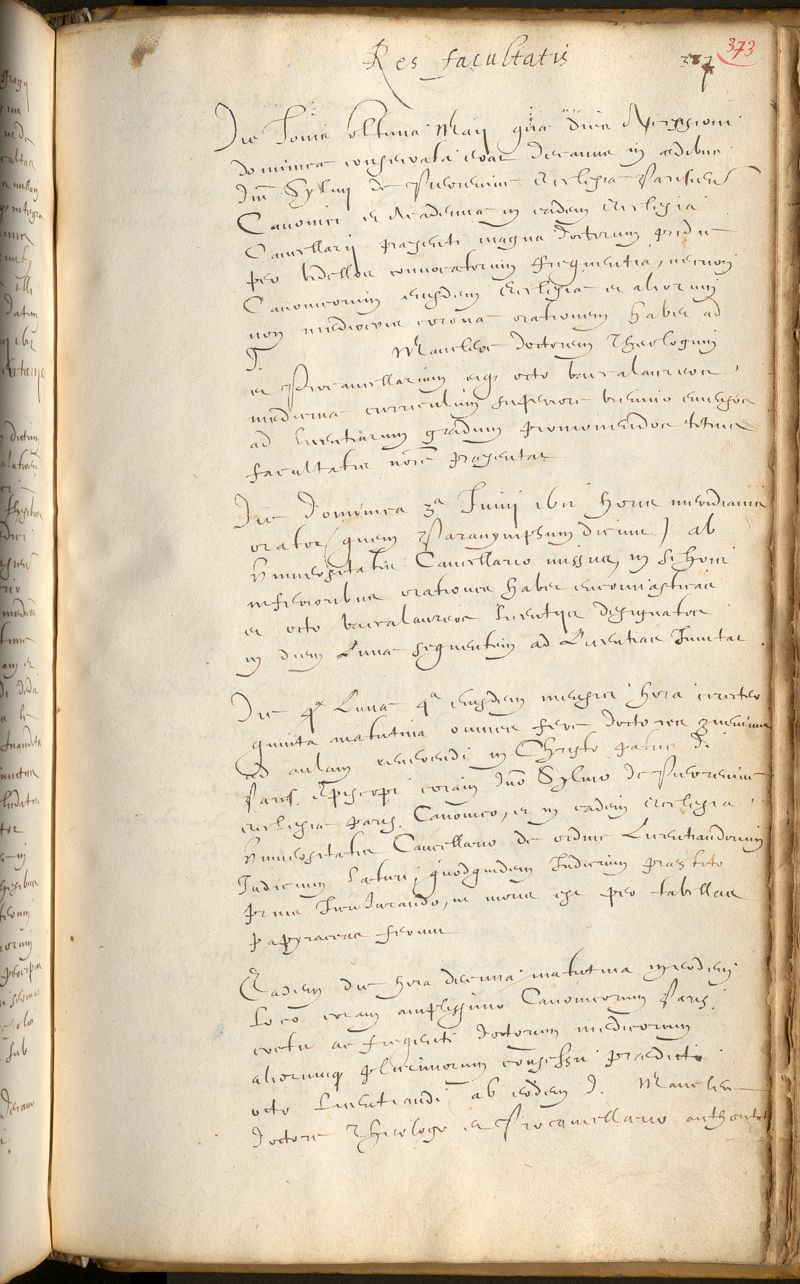 Res facultatis
387 373
Die Jovis ultima Maij quae dies Ascensioni
dominicae consecrata erat Decanus in aedibus
Dni Sylvij de Pierrevive Ecclesiae Parisiens
Canonici et Academiae in eadem Ecclesia
Cancellarij praesenti magna doctorum pridie
per bidellos convocatorum frequentia, necnon
Canonicorum eiusdem Ecclesiae et aliorum
non mediocris corona orationem habet ad
D. Mauclerc doctorem Theologum
et Procancellarium eiq octo baccalaureos
medicinae curriculum superiore biennio emensos
ad licentiarum gradum promovendos totius
facultatis noie praesentat
Die Dominica 3a Junij ibis horis meridianis
orator (quem Paranymphum dicunt) ab
Universitatis Cancellario missus, in scholis
inferioribus orationes habet encomiasticas
et octo baccalaureos licentijs designatos
in diem Lunae sequentem ad Licentias Invitat
Die Lunae 4a eiusdem mensis hora circiter
quinta matutina omnes fere doctores
ad aulam reverendi in Christo patris D.
Paris. Episcopi coram Dno Sylvio de Pierrevive
ecclesiae Paris. Canonico, et in eadem Ecclesia
Universitatis Cancellario de ordine Licentiandorum
Judicium laturi, quodquidem Judicium praestito
prius Jureiurando, ut moris est per tabellas
papyraceas ferunt
Eadem die hora decima matutina in eodem
loco coram amplissimo Canonicorum Paris.
coetu ac frequenti doctorum medicorum
aliorumq plurimorum consessu praedicti
octo Licentiandi ab eodem D. Mauclerc
doctore Theologo et Procancellario authoritate